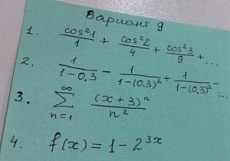 Вариант 9
1. cos²1/1 + cos²2/4 + cos²3/9 + ...
2. 1/(1-0,3) - 1/(1-(0,3)²) + 1/(1-(0,3)³) - ...
3. ∞ ∑ n=1 (x+3)ⁿ/n²
4. f(x) = 1 - 2^(3x)